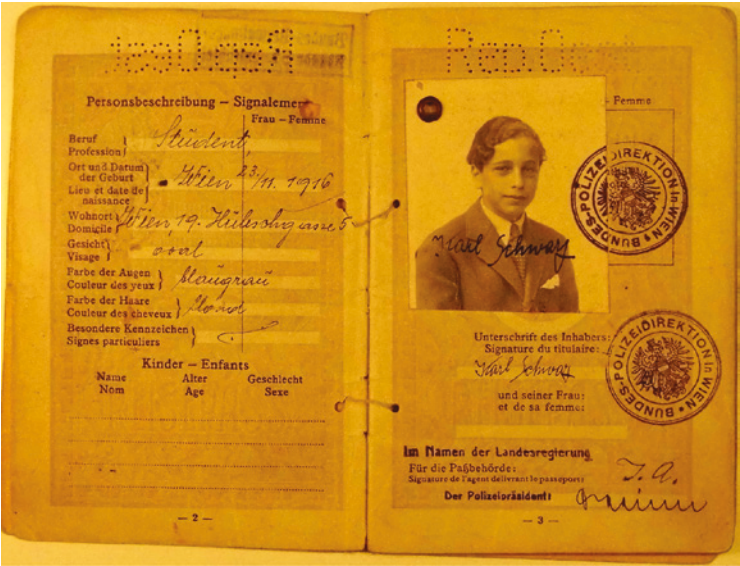 Rep.Oest.
Personsbeschreibung – Signalement
Frau – Femme
Beruf
Profession
Student
Ort und Datum
der Geburt
Lieu et date de
naissance
Wien 23./11. 1916
Wohnort
Domicile
Wien, 19.
5
Gesicht
Visage
oval
Farbe der Augen
Couleur des yeux
blaugrau
Farbe der Haare
Couleur des cheveux
blond
Besondere Kennzeichen
Signes particuliers
Kinder – Enfants
Name
Nom
Alter
Age
Geschlecht
Sexe
— 2 —
Rep.Oest.
- Femme
BUNDES-POLIZEIDIREKTION in WIEN
Karl Schwarz
Unterschrift des Inhabers:
Signature du titulaire:
Karl Schwarz
und seiner Frau:
et de sa femme:
BUNDES-POLIZEIDIREKTION in WIEN
Im Namen der Landesregierung
Für die Paßbehörde:
Signature de l'agent délivrant le passeport:
I. A.
Der Polizeipräsident:
— 3 —